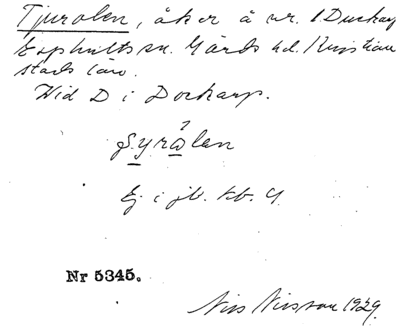 Tjurolen, åker å nr. 1 Duckarp
Esphults sn. Gärds hd. Kristian
stads län.
Vid D i Dockarp.
Ej i jb. kb. 4
Nr 5345.
Nils Nilsson 1929.